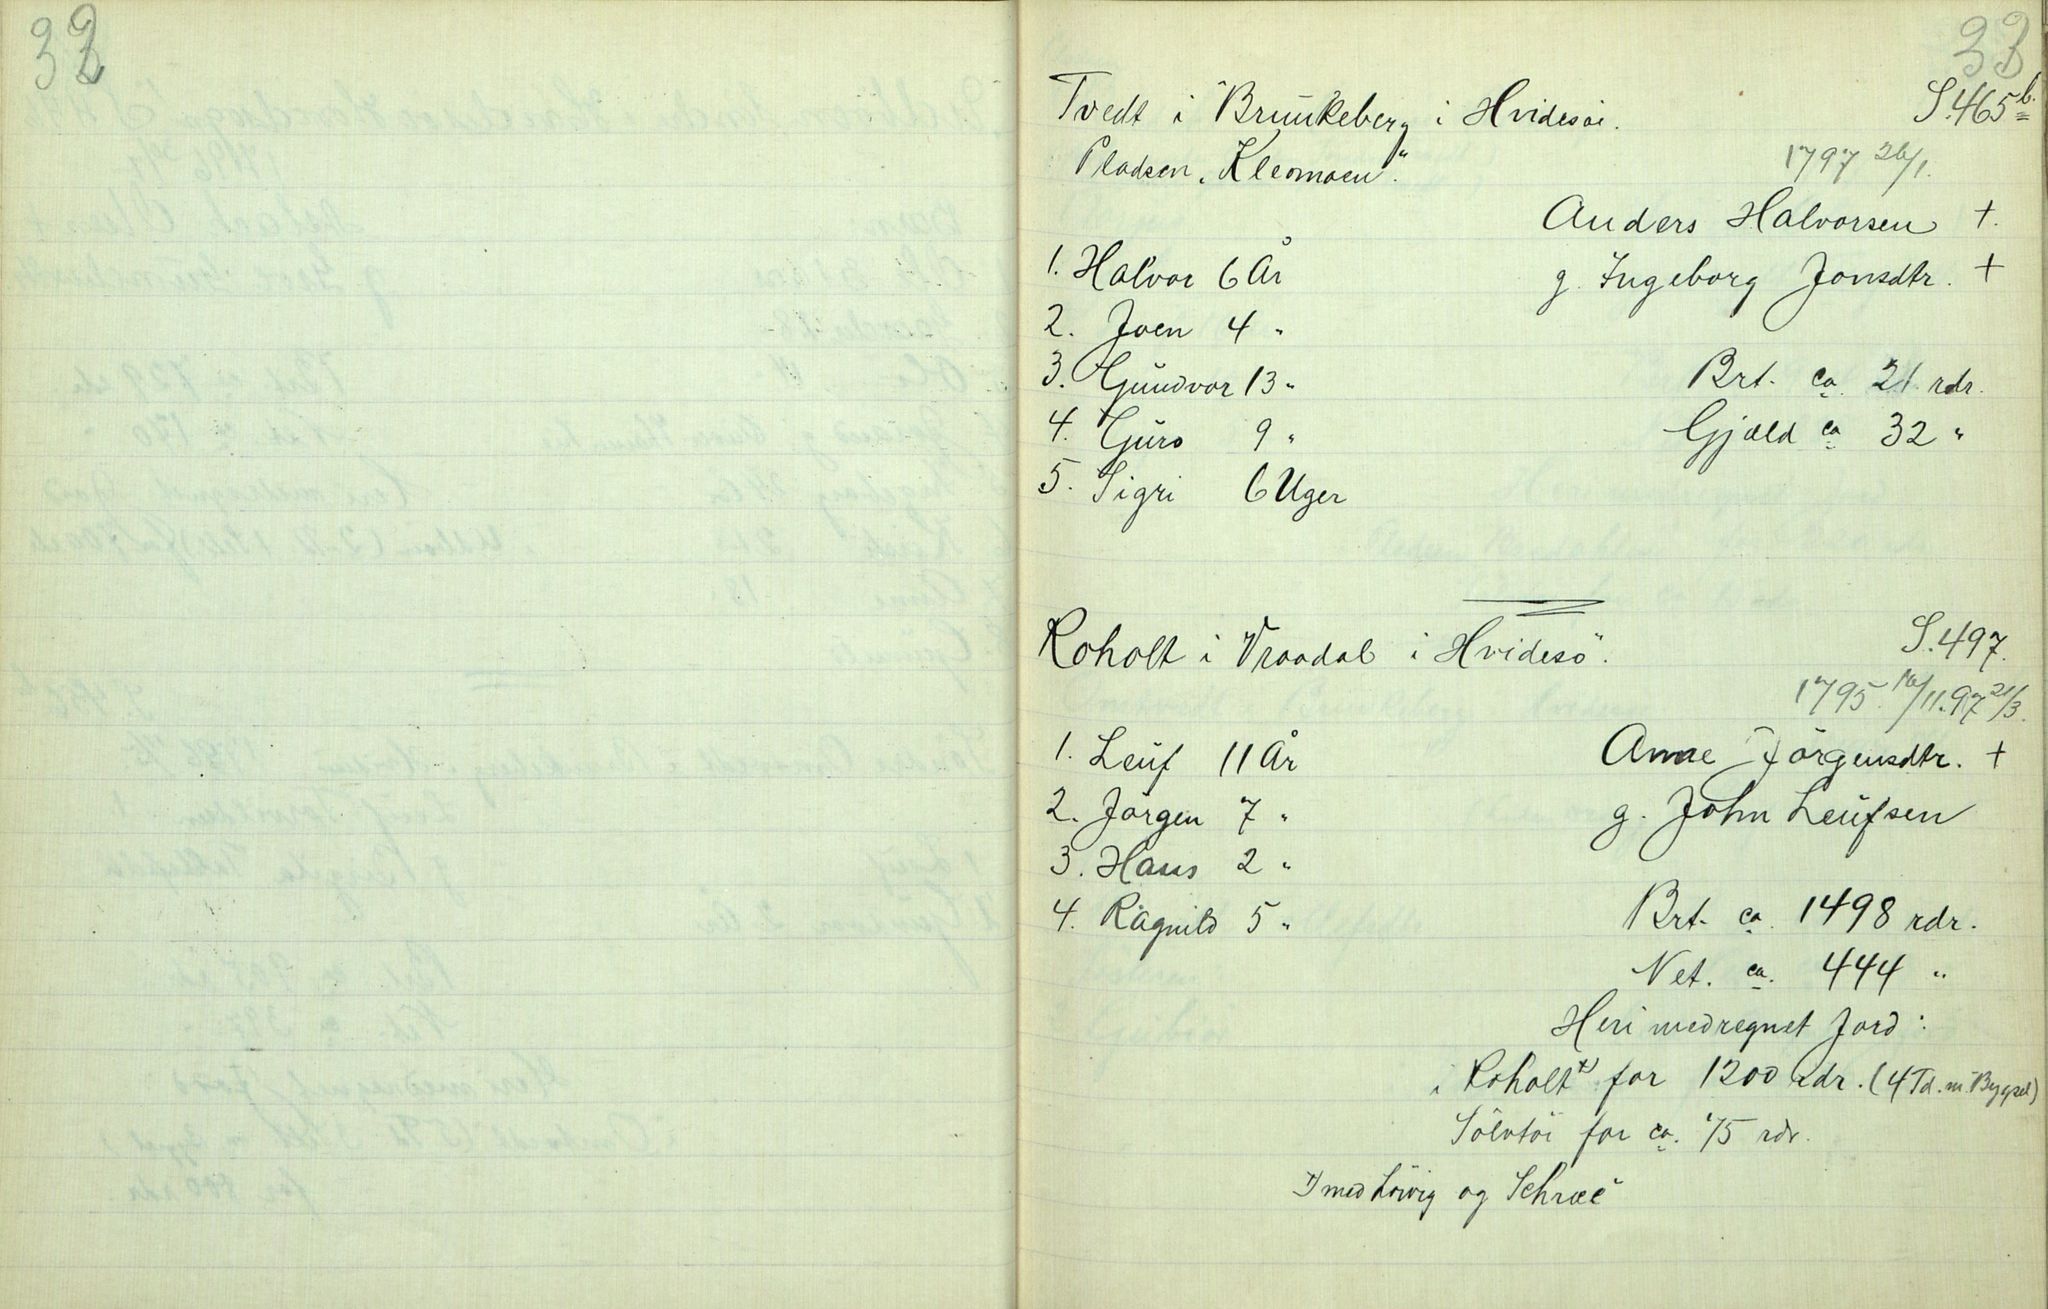 32
33
Tvedt i Brunkeberg i Hvidesöi. S.465 b.
Pladsen „Kleomoen“. 1797 26/1.
Anders Halvorsen †.
1. Halvor 6 År g. Ingeborg Jonsdtr. †
2. Joen 4 "
3. Gundvor 13 " Brt. ca. 21 rdr.
4. Guro 9 " Gjæld ca 32 "
5. Sigri 6 Uger
Roholt i Vraadal i Hvidesö. S.497.
1795. 16/11. 97 21/3.
1. Leuf 11 År Anne Jörgensdtr. †
2. Jörgen 7 " g. John Leufsen
3. Hans 2 "
4. Ragnild 5 " Brt. ca. 1498 rdr.
Net. ca. 444 "
Heri medregnet Jord:
i Roholt x) for 1200 rdr. (4 Td. m. Bygsel)
Sölvtöi for ca. 75 rdr.
x) med Löivig og